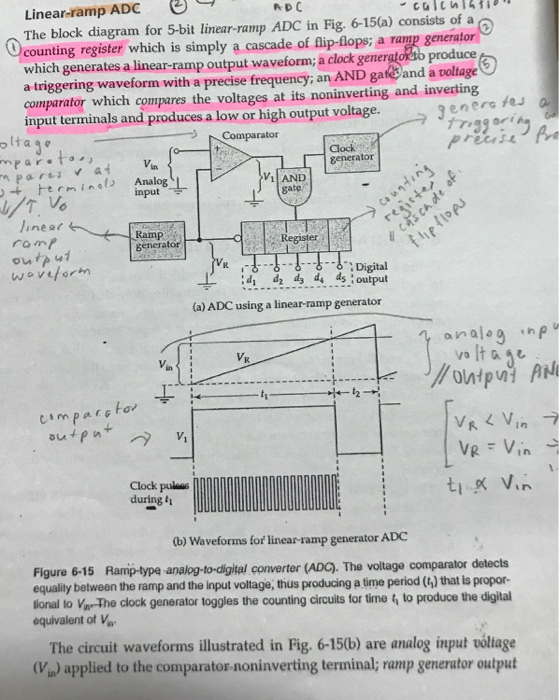 Linear-ramp ADC
2
ADC
- calculation
The block diagram for 5-bit linear-ramp ADC in Fig. 6-15(a) consists of a
1 counting register which is simply a cascade of flip-flops; a ramp generator 2
which generates a linear-ramp output waveform; a clock generator to produce
a triggering waveform with a precise frequency; an AND gate and a voltage 5
comparator which compares the voltages at its noninverting and inverting
input terminals and produces a low or high output voltage.
generates a
triggering
precise
Comparator
Vin
Analog
input
Clock
generator
V1
AND
gate
terminals
Vo
linear
ramp
output
waveform
Ramp
generator
Register
counting
register
// cascade of
flipflops
VR
d1 d2 d3 d4 d5
Digital
output
(a) ADC using a linear-ramp generator
Vin
VR
analog
voltage
// output
t1
t2
comparator
output
V1
VR < Vin →
VR = Vin
t1 ∝ Vin
Clock pulses
during t1
(b) Waveforms for linear-ramp generator ADC
Figure 6-15 Ramp-type analog-to-digital converter (ADC). The voltage comparator detects
equality between the ramp and the input voltage, thus producing a time period (t1) that is propor-
tional to Vin. The clock generator toggles the counting circuits for time t1 to produce the digital
equivalent of Vin.
The circuit waveforms illustrated in Fig. 6-15(b) are analog input voltage
(Vin) applied to the comparator noninverting terminal; ramp generator output